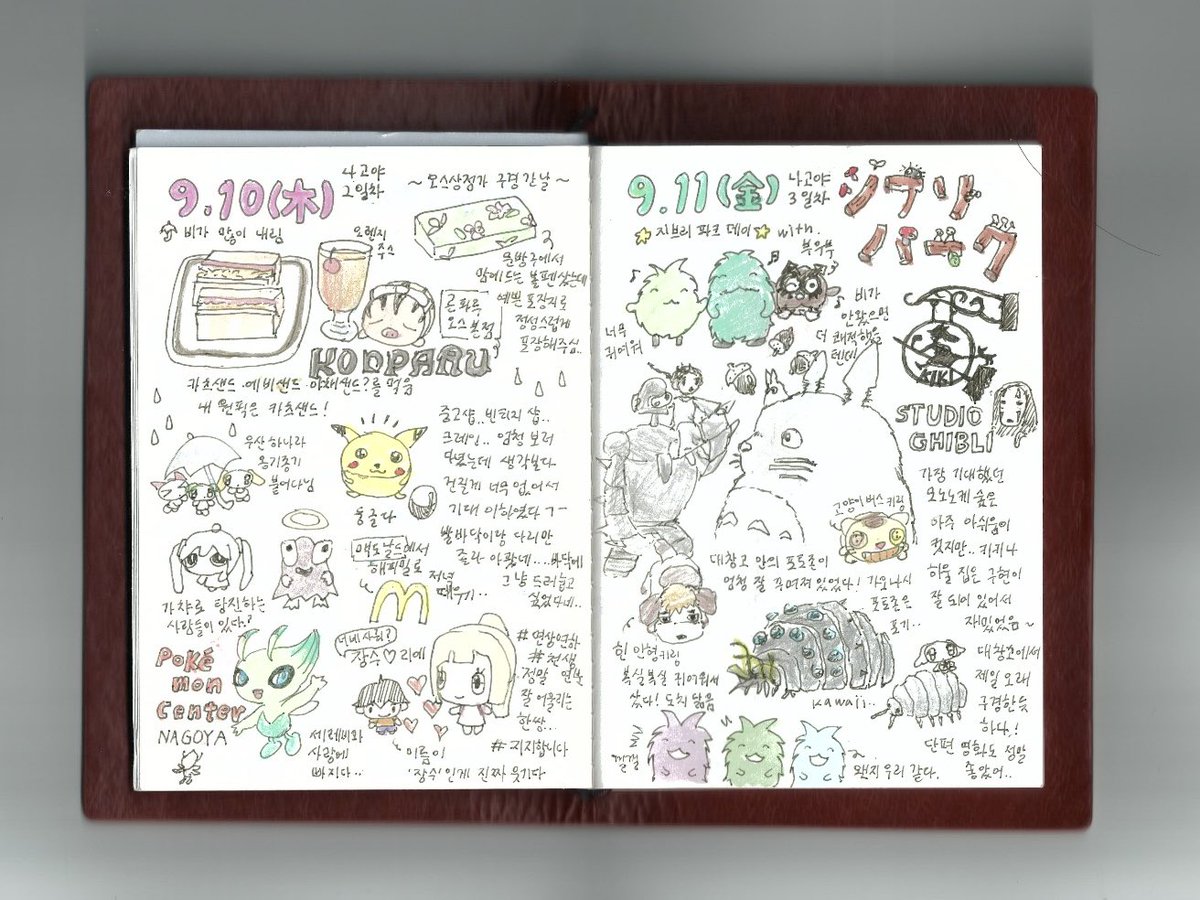 9.10(木)
나고야
2일차
~오스상점가 구경 간 날~
비가 많이 내림
오렌지
주스
문방구에서
맘에드는 볼펜 샀는데
예쁜 포장지로
정성스럽게
포장해주심..
콘파루
오스 본점
KONPARU
카츠샌드 에비샌드 야채샌드?를 먹음
내 원픽은 카츠샌드!
우산 하나라
옹기종기
붙어다님
둥글다
중고샵.. 빈티지 샵..
크레인.. 엄청 보러
다녔는데 생각보다
건질게 너무 없어서
기대 이하였다 ㄱ-
발바닥이랑 다리만
졸라 아팠네....
그냥 드러눕고
싶었다네..
맥도날드에서
해피밀로
저녁
때우기..
가챠로 탕진하는
사람들이 있다?
Poké
mon
Center
NAGOYA
세레비와
사랑에
빠지다..
너네 사귀?
장수♡리에
이름이
'장수'인게 진짜 웃기다
#연상연하
#천생
정말 연분
잘 어울리는
한쌍..
#지지합니다
9.11(金)
나고야
3일차
ジブリ
パーク
지브리 파크 데이
with.
부우부
너무
귀여워
비가
안왔으면
더 쾌적했을
텐데
KIKI
STUDIO
GHIBLI
고양이버스 키링
가장 기대했던
모노노케 숲은
아주 아쉬움이
컸지만.. 키키나
하울 집은 구현이
잘 되어 있어서
재밌었음~
대창고 안의 포토존이
엄청 잘 꾸며져 있었다! 가오나시
포토존은
포기..
흰 인형키링
복실복실 귀여워서
샀다! 도치 닮음
kawaii..
대창고에서
제일 오래
구경한듯
하다!
단편 영화도 정말
좋았어..
낄낄
왠지 우리 같다.